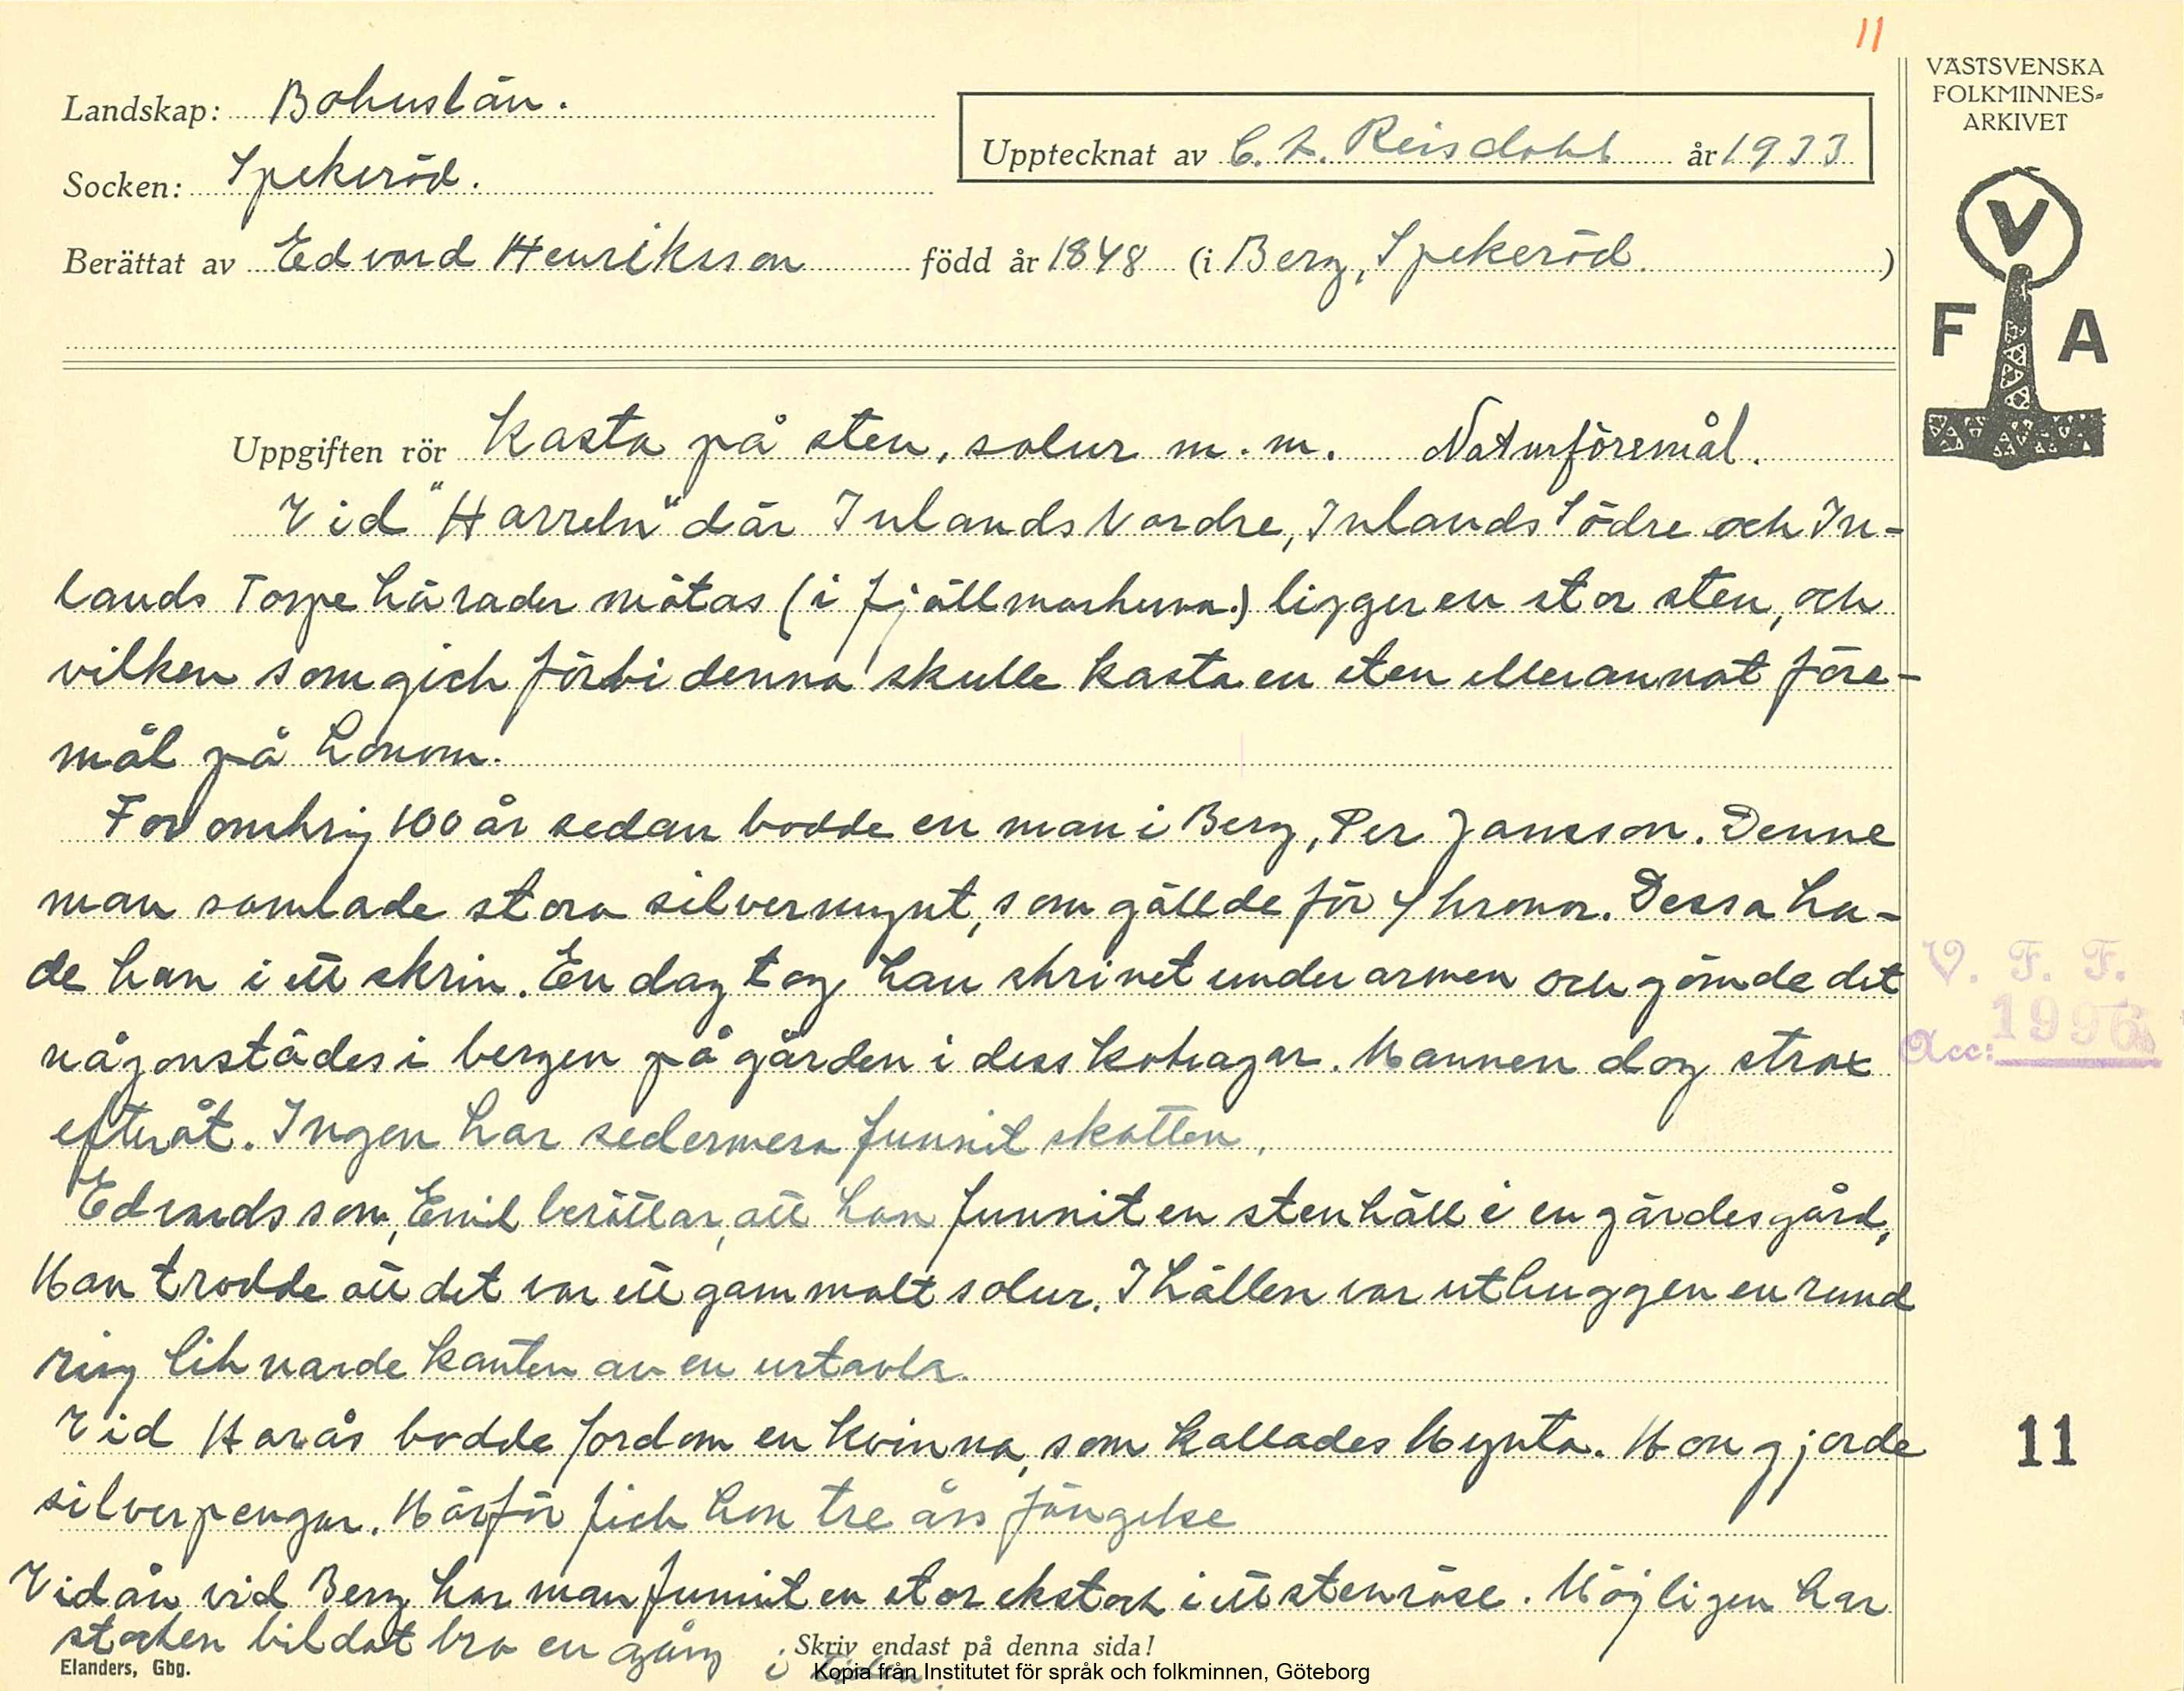 11
VÄSTSVENSKA
FOLKMINNES-
ARKIVET
Landskap: Bohuslän.
Upptecknat av C. A. Reisdahl år 1933
Socken: Spekeröd.
Berättat av Edvard Henriksson född år 1848 (i Berg, Spekeröd. )
V
F A
Uppgiften rör Kasta på sten, solur m.m. Naturföremål.
Vid "Harreln" där Inlands Nordre, Inlands Södre och In-
lands Torpe härader mötas (i fjällmarkerna.) ligger en stor sten, och
vilken som gick förbi denna skulle kasta en sten eller annat före-
mål på honom.
För omkring 100 år sedan bodde en man i Berg, Per Jansson. Denne
man samlade stora silvermynt, som gällde för 4 kronor. Dessa ha-
de han i ett skrin. En dag tog han skrinet under armen och gömde det
någonstädes i bergen på gården i dess kohagar. Mannen dog strax
efteråt. Ingen har sedermera funnit skatten.
Edvards son, Emil berättar, att han funnit en stenhäll i en gärdesgård,
Man trodde att det var ett gammalt solur. I hällen var uthuggen en rund
ring liknande kanten av en urtavla.
Vid Harås bodde fordom en kvinna, som kallades Mynta. Hon gjorde
silverpengar. Härför fick hon tre års fängelse
Vid ån vid Berg har man funnit en stor ekstock i ett stenröse. Möjligen har
stocken bildat bro en gång i
V. F. F.
Acc: 1996
11
Skriv endast på denna sida!
Elanders, Gbg.
Kopia från Institutet för språk och folkminnen, Göteborg